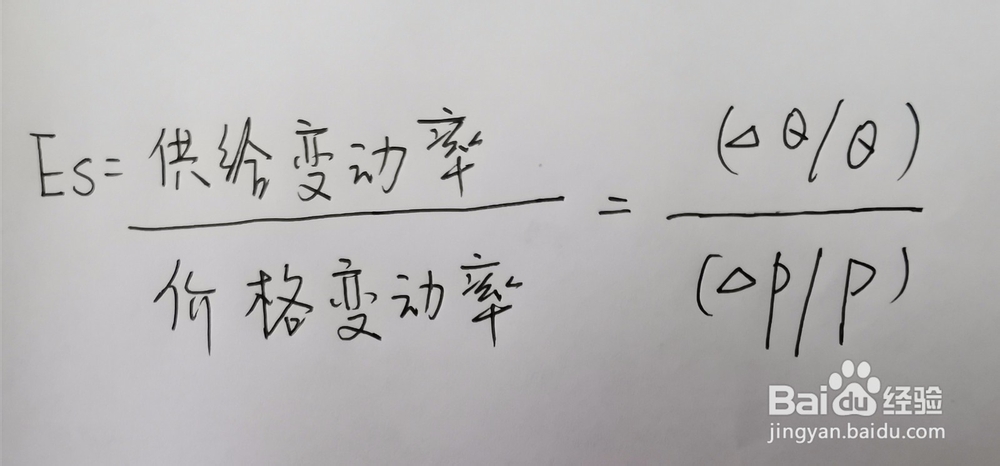 Es = 供给变动率 / 价格变动率 = (△Q/Q) / (△P/P)
Baidu经验
jingyan.baidu.com